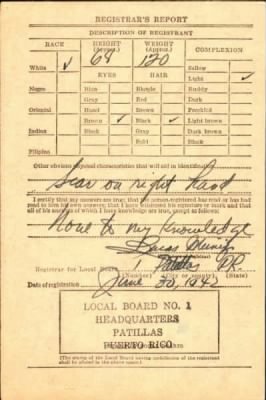 REGISTRAR'S REPORT
DESCRIPTION OF REGISTRANT
RACE HEIGHT (Approx.) WEIGHT (Approx.) COMPLEXION
White ✓ 68 120 Sallow
Light ✓
EYES HAIR
Negro Blue Blonde Ruddy
Gray Red Dark
Oriental Hazel Brown Freckled
Brown ✓ Black ✓ Light brown
Indian Black Gray Dark brown
Bald Black
Filipino
Other obvious physical characteristics that will aid in identification
Scar on right hand
I certify that my answers are true; that the person registered has read or has had
read to him his own answers; that I have witnessed his signature or mark and that
all of his answers of which I have knowledge are true, except as follows:
None to my knowledge
Registrar for Local Board 1 Patillas P.R.
(Number) (City or county) (State)
Date of registration June 30, 1942
LOCAL BOARD NO. 1
HEADQUARTERS
PATILLAS
PUERTO RICO
(The stamp of the Local Board having jurisdiction of the registrant
shall be placed in the above space.)